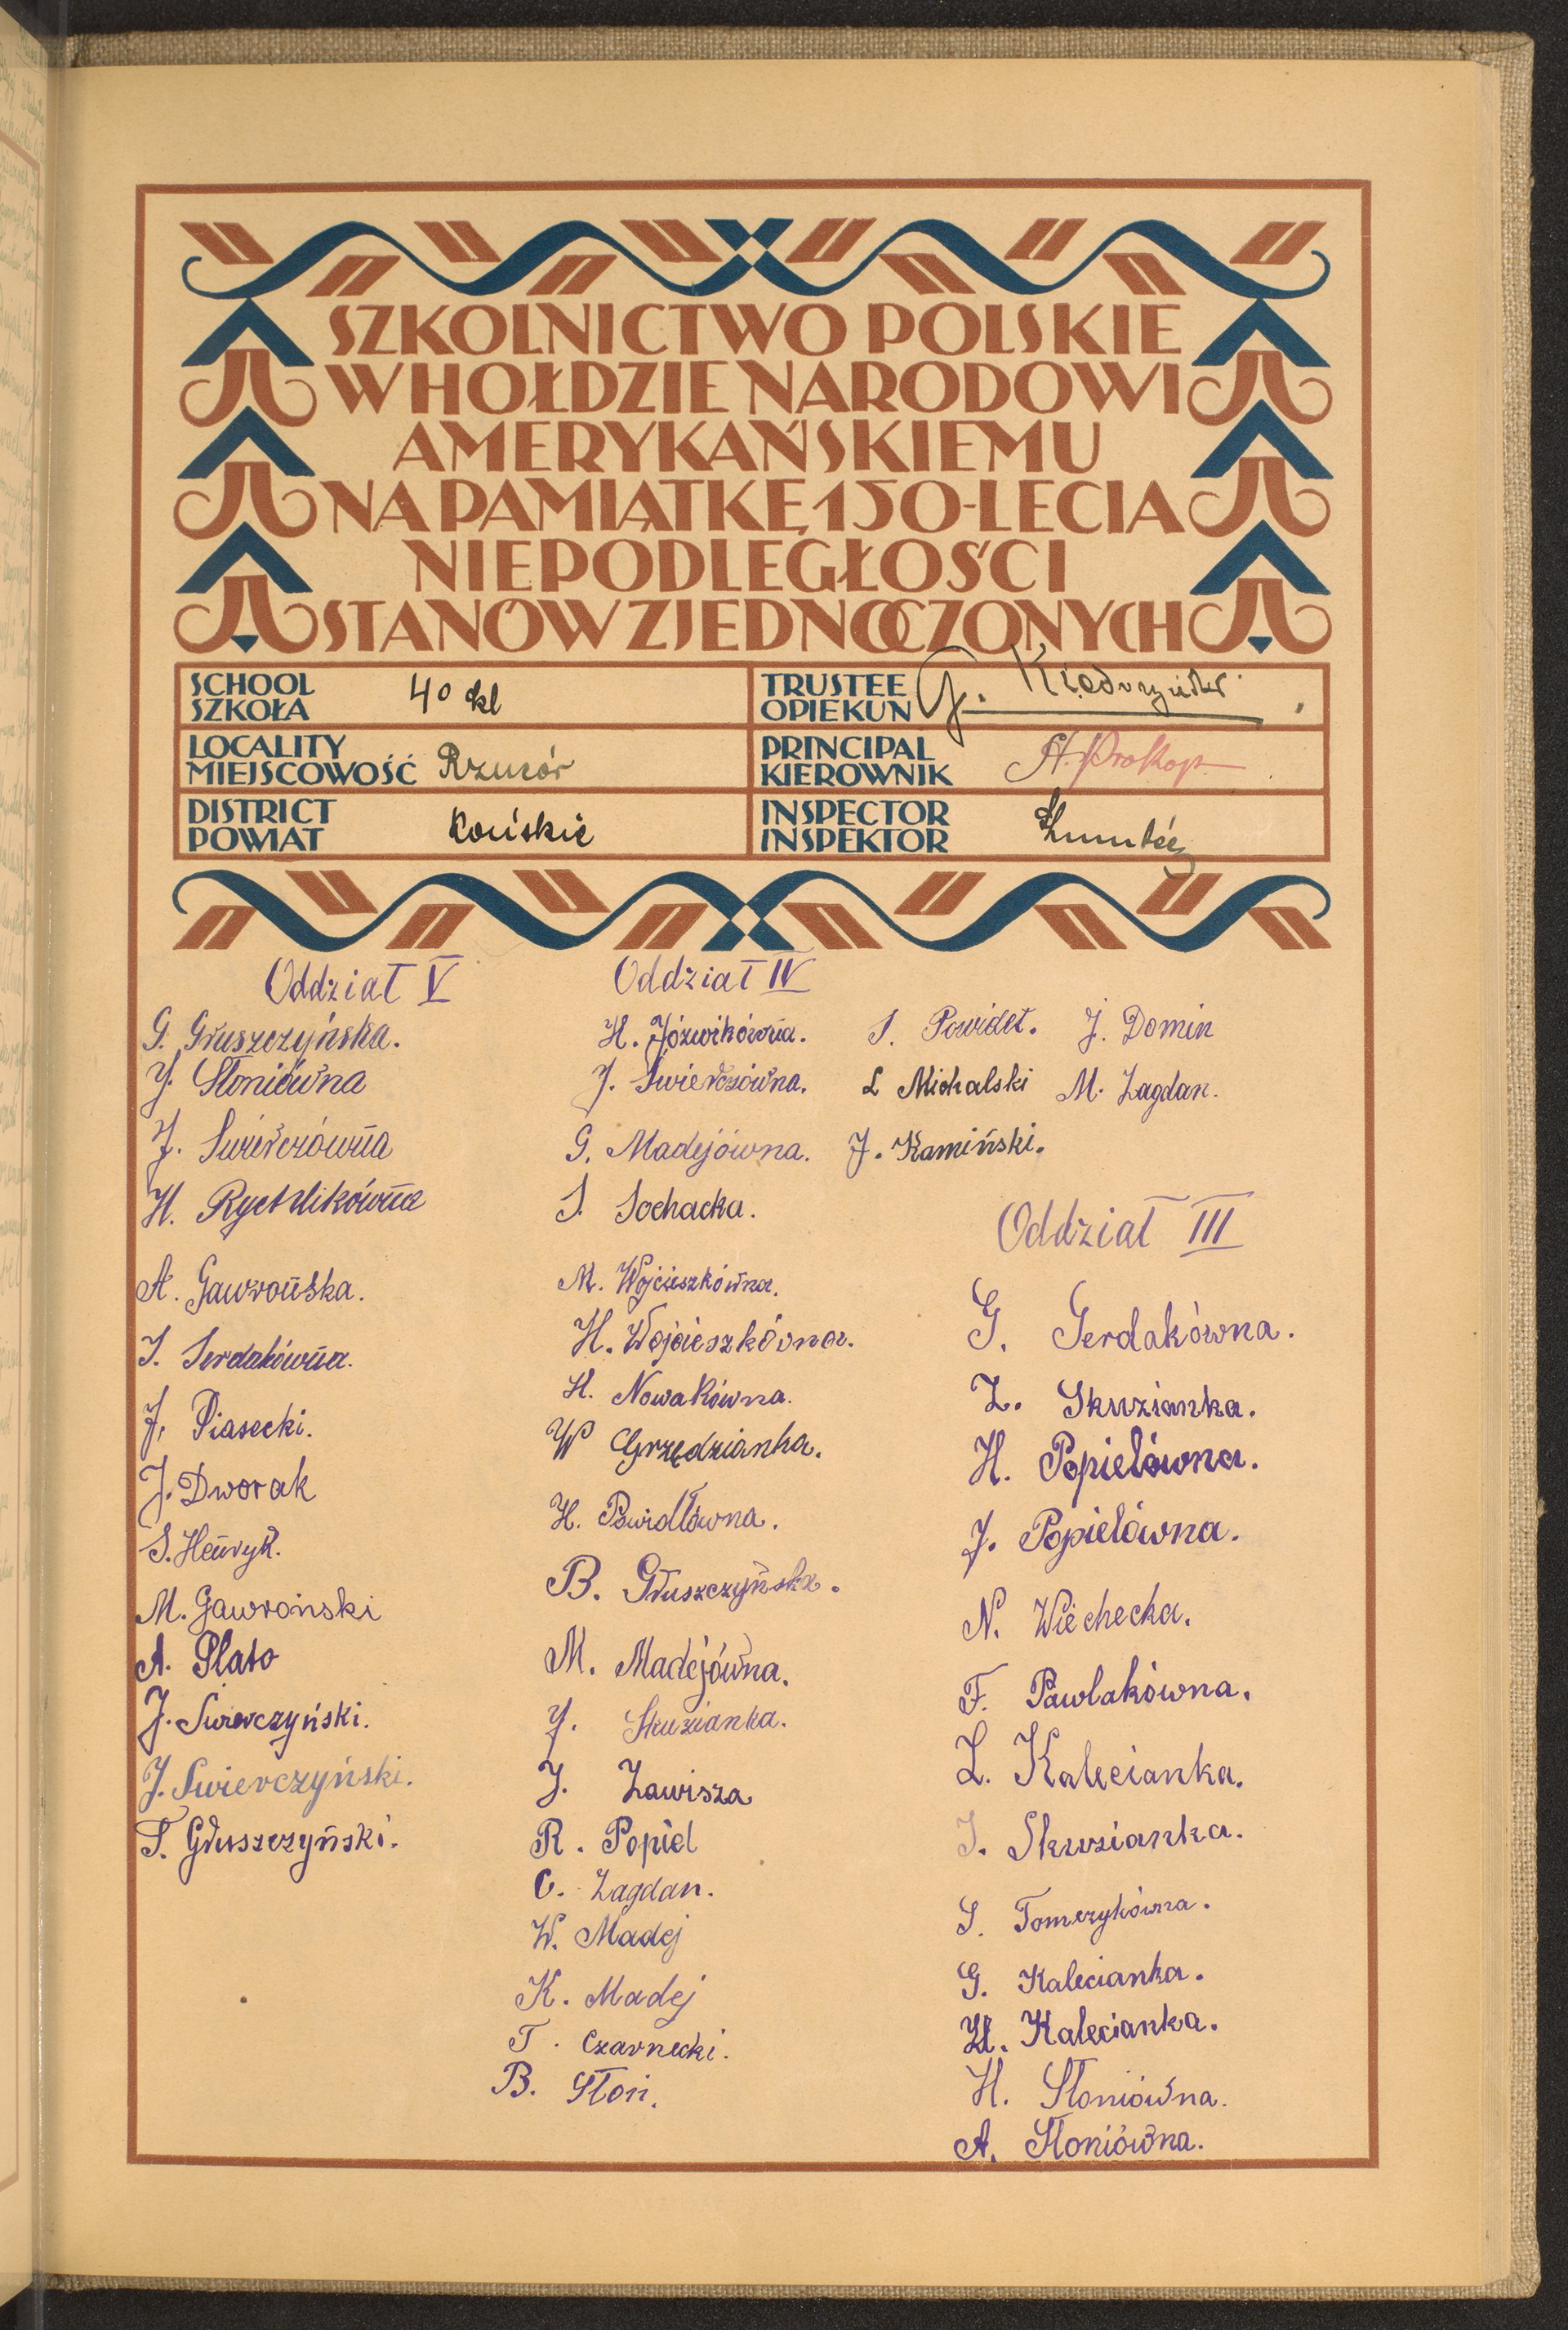 SZKOLNICTWO POLSKIE
W HOŁDZIE NARODOWI
AMERYKAŃSKIEMU
NA PAMIĄTKĘ 150-LECIA
NIEPODLEGŁOŚCI
STANÓW ZJEDNOCZONYCH
SCHOOL
SZKOŁA 40 kl
TRUSTEE
OPIEKUN J.
LOCALITY
MIEJSCOWOŚĆ
PRINCIPAL
KIEROWNIK A. Prokop
DISTRICT
POWIAT Końskie
INSPECTOR
INSPEKTOR
Oddział V
G. Głuszczyńska.
J. Słoniówna
J. Świerczówna
H. Rychlikówna
A. Gawrońska.
J. Serdakówna.
J. Piasecki.
J. Dworak
S. Henryk.
M. Gawroński
A. Plato
J. Swierczyński.
J. Swierczyński.
T. Głuszczyński.
Oddział IV
H. Józwikówna.
J. Świerczówna.
G. Madejówna.
S. Sochacka.
M. Wojcieszkówna.
H. Wojcieszkówna.
H. Nowakówna.
W Grzędzianka.
H. Powidłówna.
B. Głuszczyńska.
M. Madejówna.
J. Skuzianka.
J. Zawisza
R. Popiel
C. Zagdan.
W. Madej
K. Madej
T. Czarnecki.
B. Słoń.
S. Powideł. J. Domin
L Michalski M. Zagdan.
J. Kamiński.
Oddział III
G. Serdakówna.
Z. Skuzianka.
H. Popielówna.
J. Popielówna.
N. Wiechecka.
F. Pawlakówna.
Z. Kalecianka.
J. Skuzianka.
S. Tomczykówna.
G. Kalecianka.
H. Kalecianka.
H. Słoniówna.
A. Słoniówna.